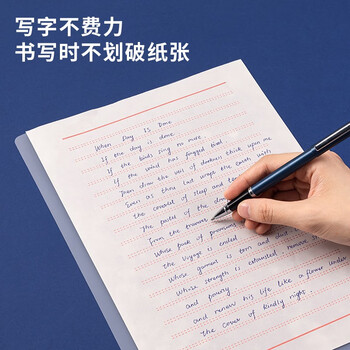 写字不费力
书写时不划破纸张
When Day Is Done
If the day is done,
If the birds sing no more,
If the wind has flagged tired
Then draw the veil of darkness thick upon me
Even as thou hast wrapt the earth with
the coverlet of sleep and
The petals of the
From the traveler
Whose pack of provisions
the voyage is ended
Whose garment is torn and
Whose strength is exhausted remove sh
and poverty
and renew his life like a flower under
the cover of kindly night.